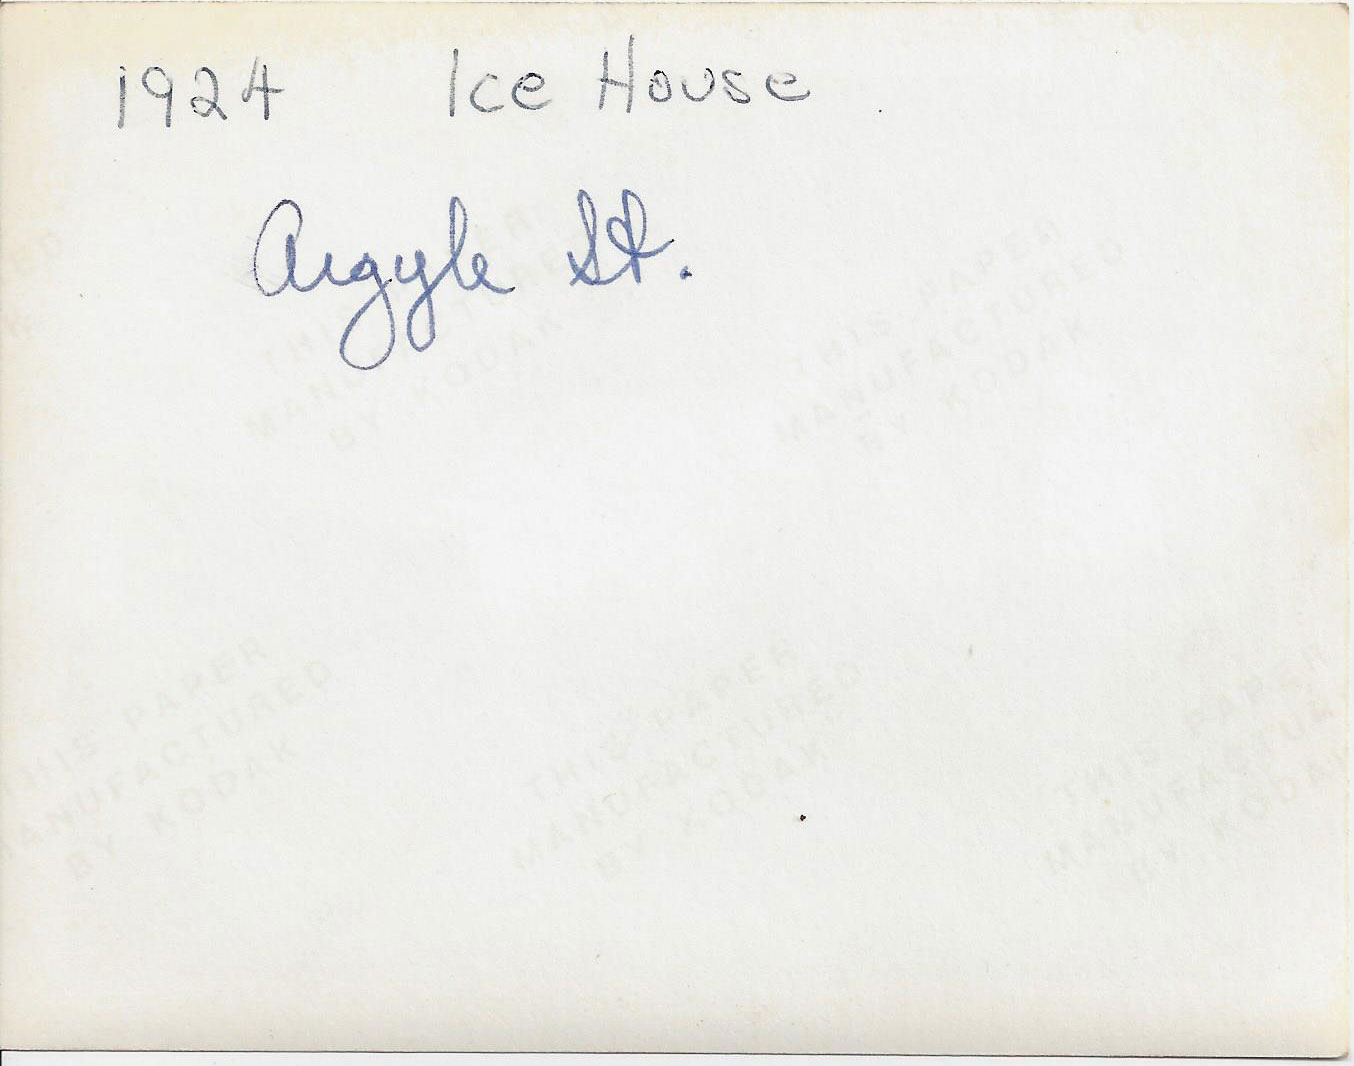 1924 Ice House
Argyle St.
THIS PAPER
MANUFACTURED
BY KODAK
THIS PAPER
MANUFACTURED
BY KODAK
THIS PAPER
MANUFACTURED
BY KODAK
THIS PAPER
MANUFACTURED
BY KODAK
THIS PAPER
MANUFACTURED
BY KODAK